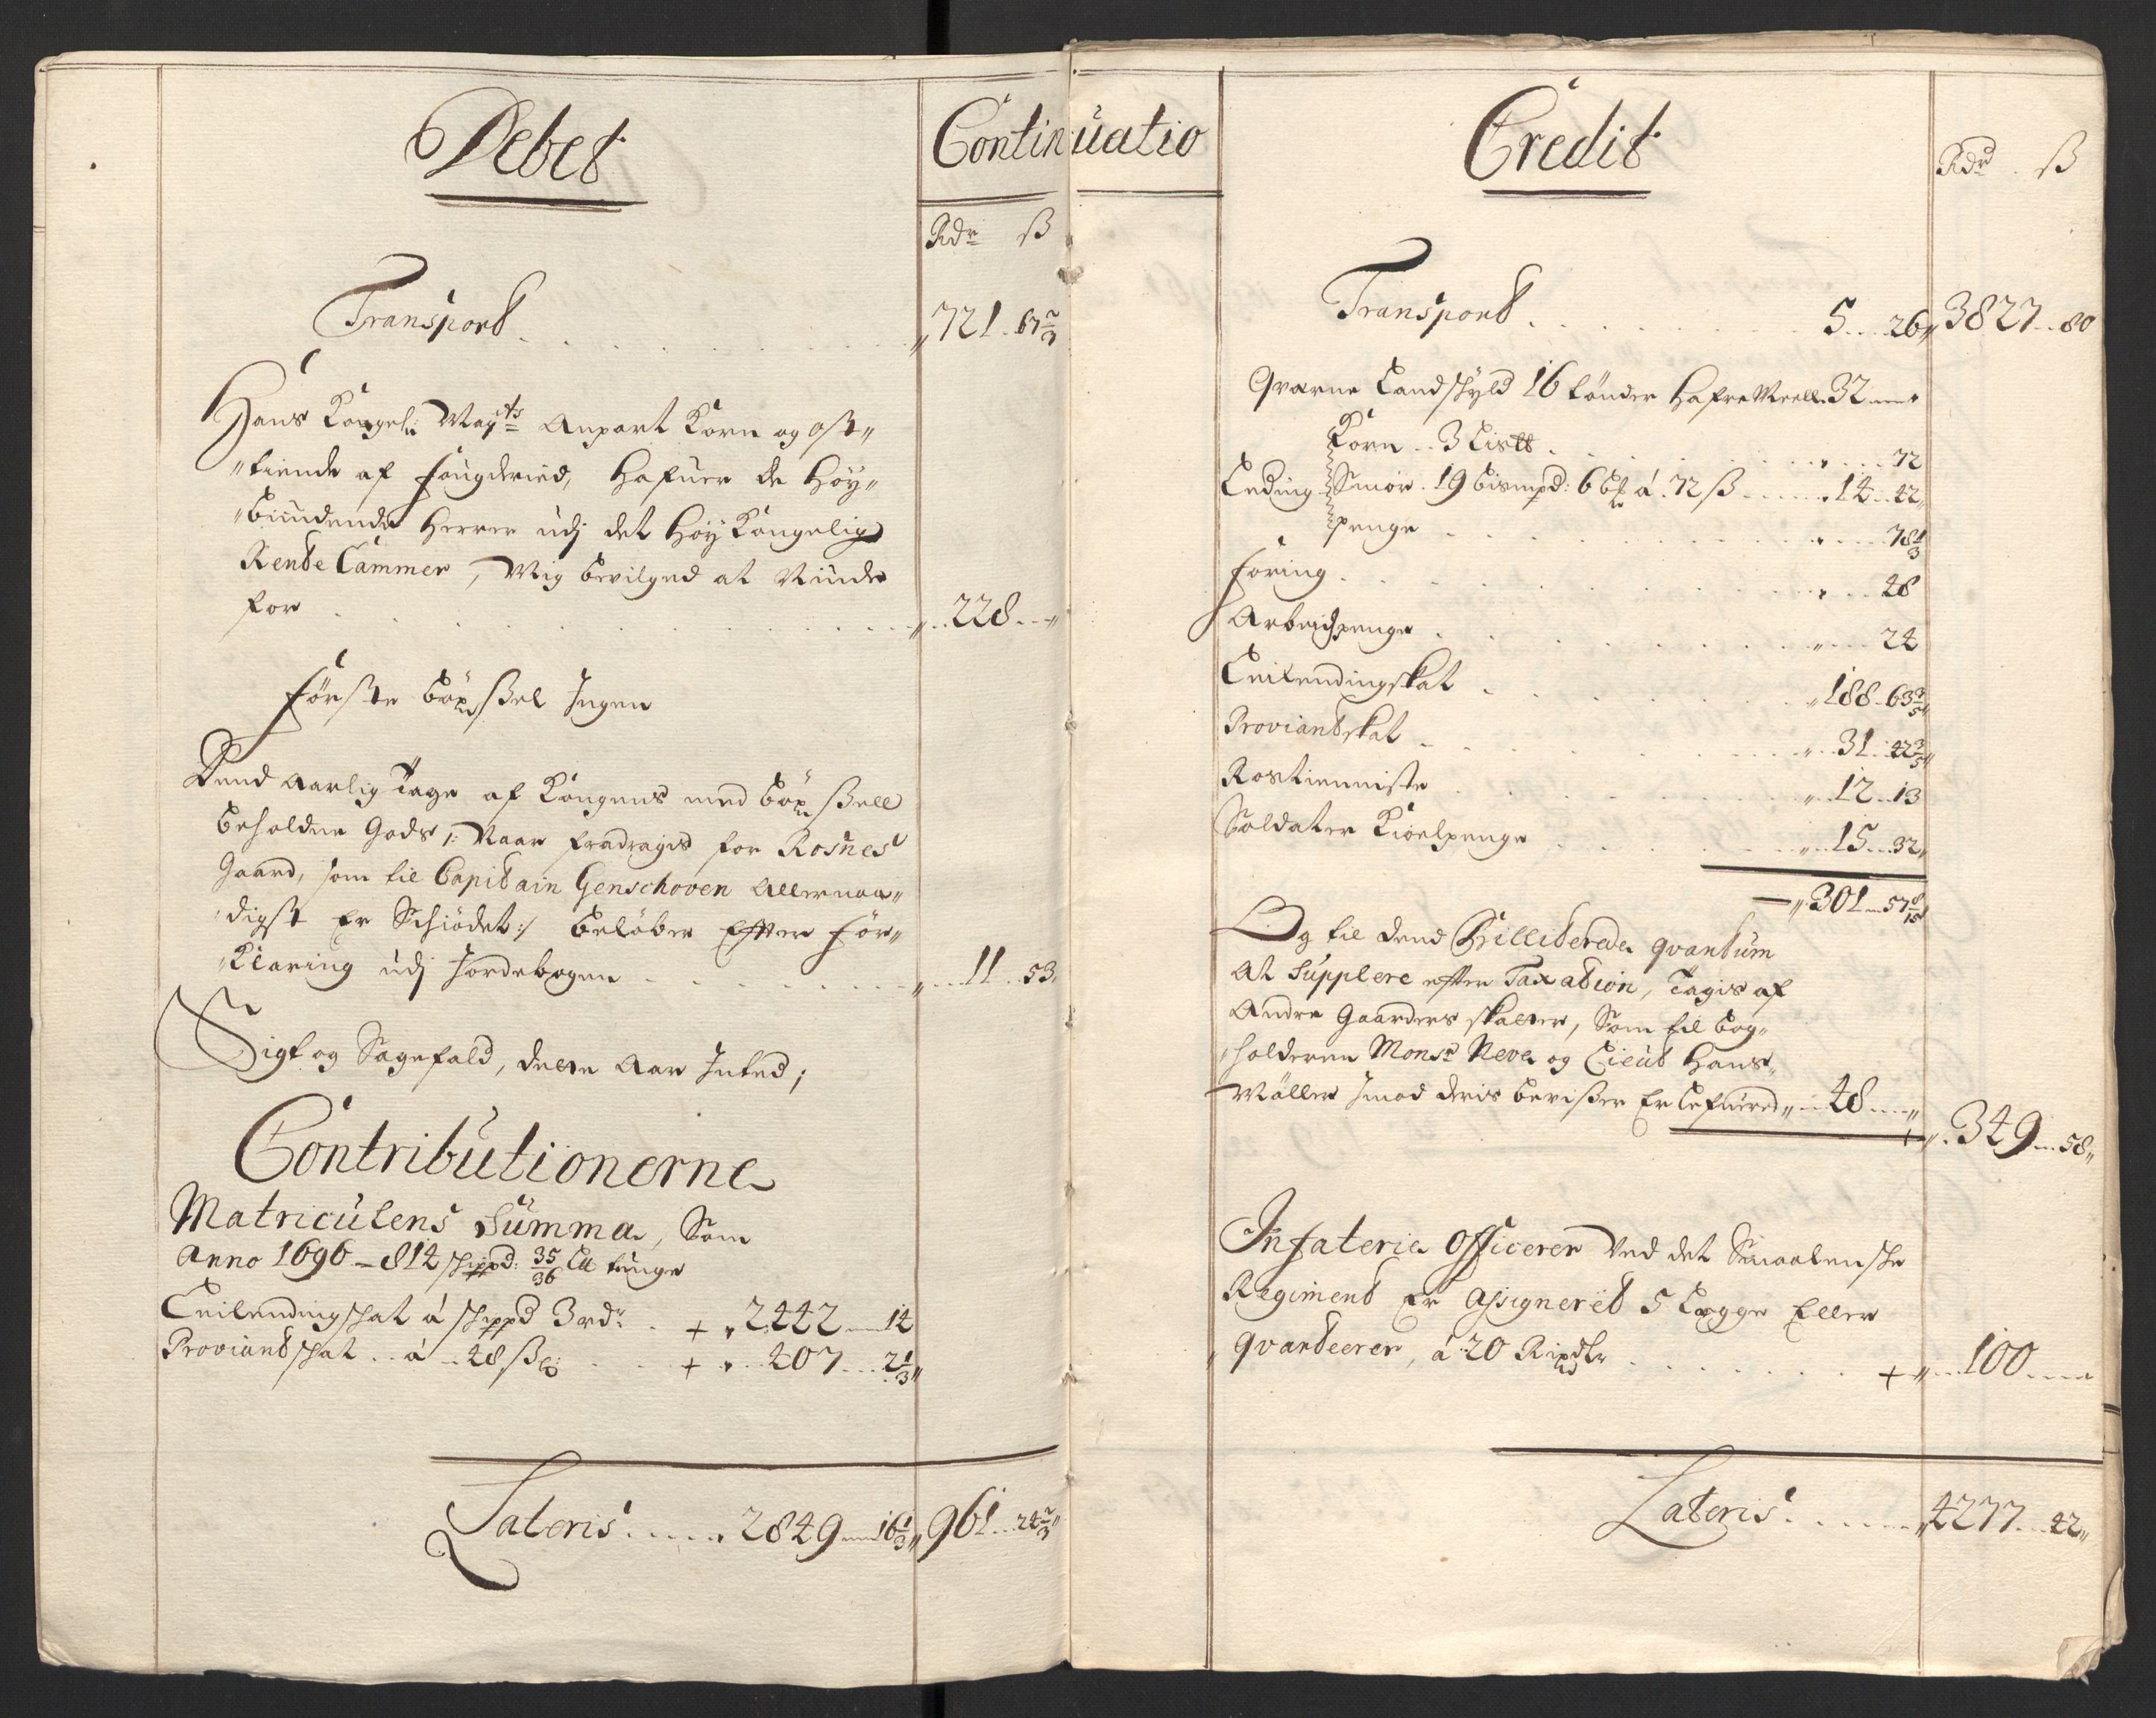 Debet
Continuatio
Rdr ß
Transport . . . . . . . . „ 721 . 67 2/3
Hans Kongel: Mayts Anpart Korn og ost„
„tiende af fougderied, hafuer de Høy„
„biudende Herrer udj det Høy Kongelig
Rente Cammer, Mig bevilged at Niude
for . . . . . . . . . . „ . . 228 . . „
Første böxsel Ingen
Dend Aarlig Tage af Kongens med böxsell
beholdne Gods /: Naar fradragis for Rosnes
Gaard, som til Capitain Genschoven Allernaa„
„digst Er Schiödet :/ beløber Efter For„
„Klaring udj Jordebogen . . . . . . „ . . . 11 . . 53
Sigt og Sagefald, dette Aar Inted;
Contributionerne
Matriculens Summa, Som
Anno 1696 – 814 schippd: 35/36 Lit tunge
Leilendingschat á schippd 3 rdr . + „ 2442 — 14
Proviantschat . . á . . 48 ß . . . + „ . 407 . . . 2 1/3 „
Lateris . . . . „ 2849 — 16 1/3 „ 961 . . 24 2/3 „
Credit
Rdr . ß
Transport . . . . . . . 5 . . . 26 „ 3827 . . 80
Qvarne Landschyld 16 tönder Hafre Meell 32 — „
Korn . . 3 List . . . . . „ . . . 72
Leding Smör . 19 bismpd: 6 á . 72 ß . . . . . 14 . . 42 „
penge . . . . . . . . „ . . . 78 1/3
Foring . . . . . . . . „ . . . 48
Arbeidspenge . . . . . . . „ . . . 24
Leilendingskat . . . . . . „ 188 . 63 3/5 „
Proviantskat . . . . . . . „ . . 31 . . 42 3/5 „
Rostienniste . . . . . . . „ . . 12 . . 13
Soldater Kioelpenge . . . . . „ . . 15 . . . 32 „
— „ 301 — 57 8/15
Og til dend Billiberede qvantum
At Supplere efter Taxation, Tagis af
Andre Gaarders skatter, Som til bog„
„holderen Monsr Neve og Lieut Hans
Möller Imod deris beviser Er lefuered „ . . 48 . . . „
+ „ . . 349 . . . 58 „
Infaterie Officerer Ved det Smaalensche
Regiment Er Assignerit 5 Lægge Eller
qvarteerer, á 20 Rixdlr . . . . . . + „ . . . 100 . . . .
Lateris . . . . . „ 4277 . . . 42 „